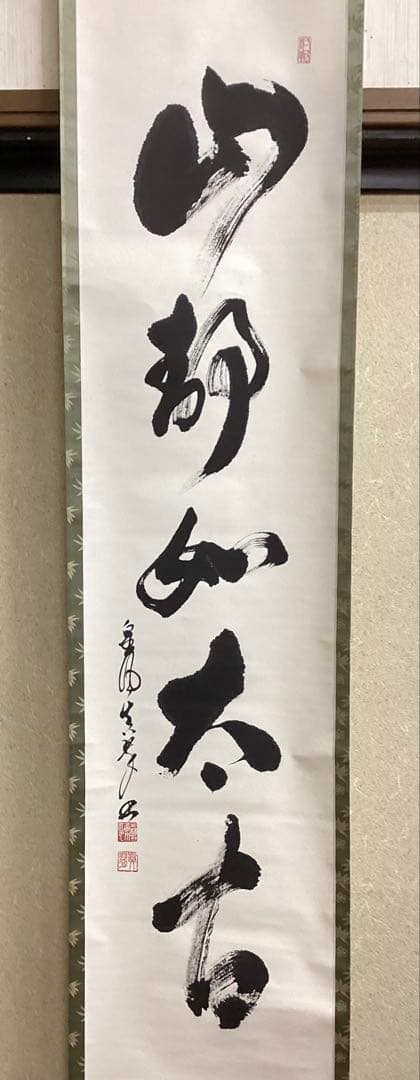 山静如太古